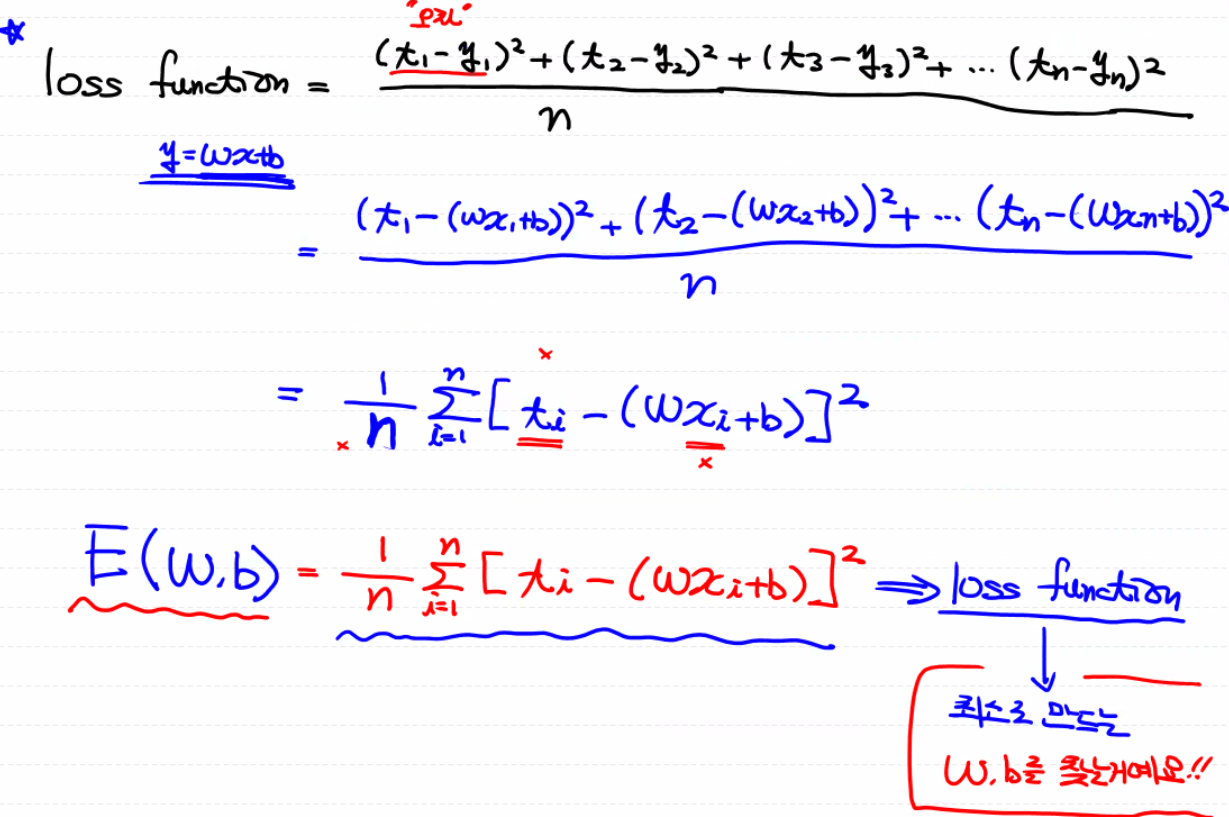 "오차"
loss function = (t₁-y₁)²+(t₂-y₂)²+(t₃-y₃)²+ ... (tₙ-yₙ)² / n
y=wx+b
= (t₁-(wx₁+b))²+(t₂-(wx₂+b))²+ ... (tₙ-(wxₙ+b))² / n
= 1/n Σᵢ₌₁ⁿ [tᵢ-(wxᵢ+b)]²
E(w,b) = 1/n Σᵢ₌₁ⁿ [tᵢ-(wxᵢ+b)]² ⟹ loss function
↓
최소로 만드는
w,b를 찾는거예요!!